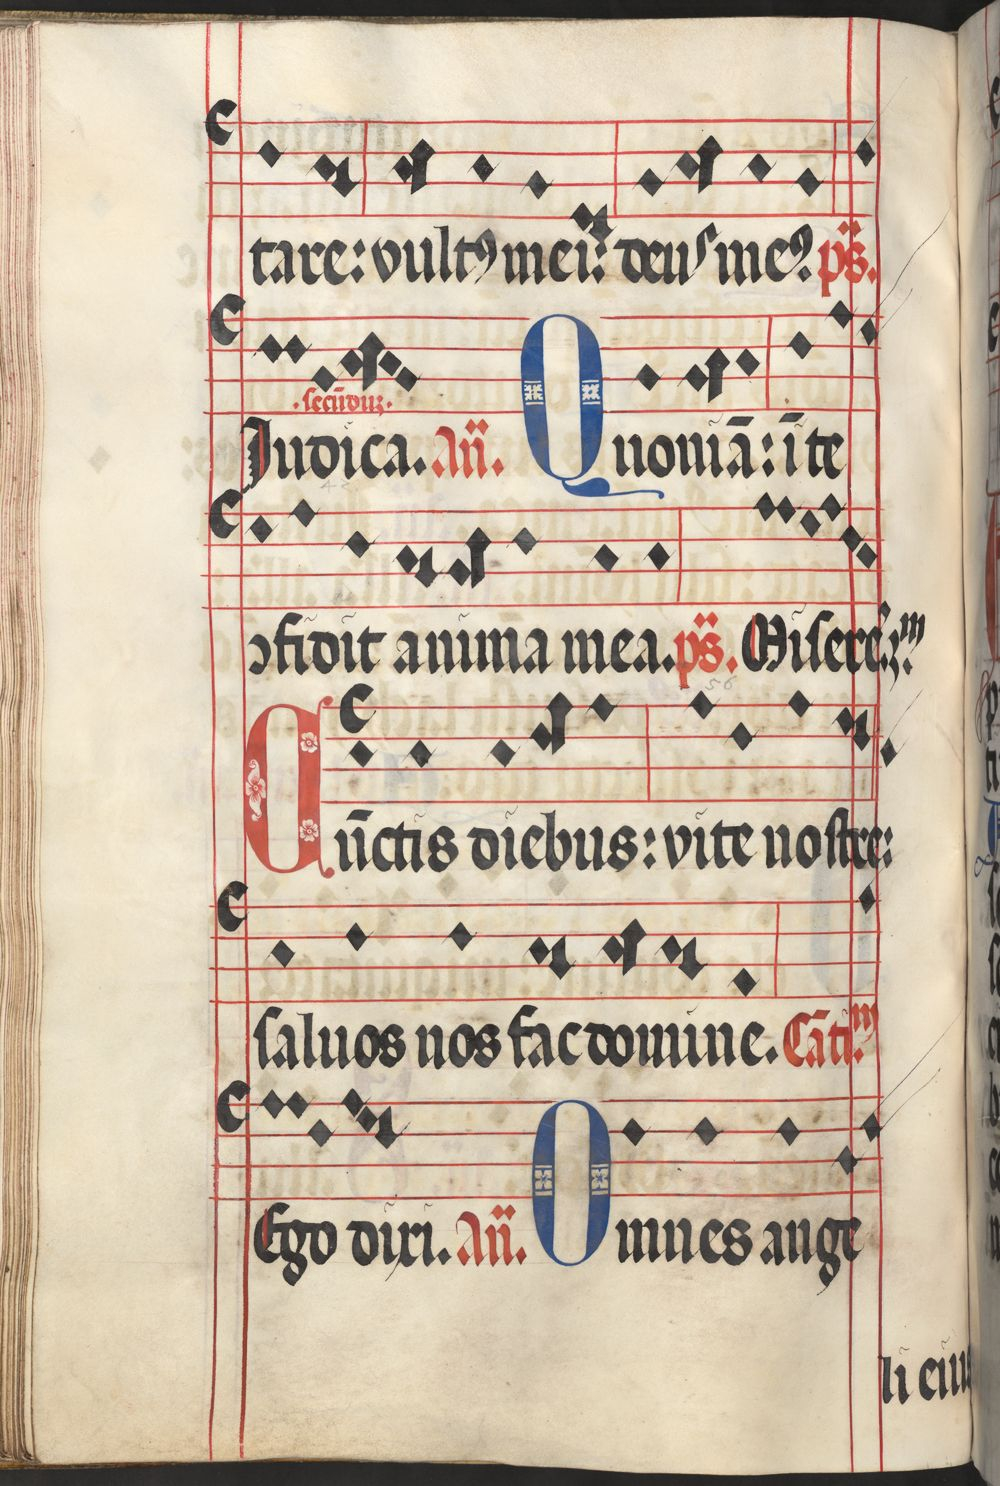 tare: vultꝰ mei: deus meꝰ. ps̄.
secūduz.
Judica. An̄. Quoniā: ī te
ↄfidit anima mea. ps̄. Miserē. ꝫ. m
56
Cūctis diebus: vite nostre:
saluos nos fac domine. Cāti.m
Ego dixi. An̄. Omnes ange
li eius